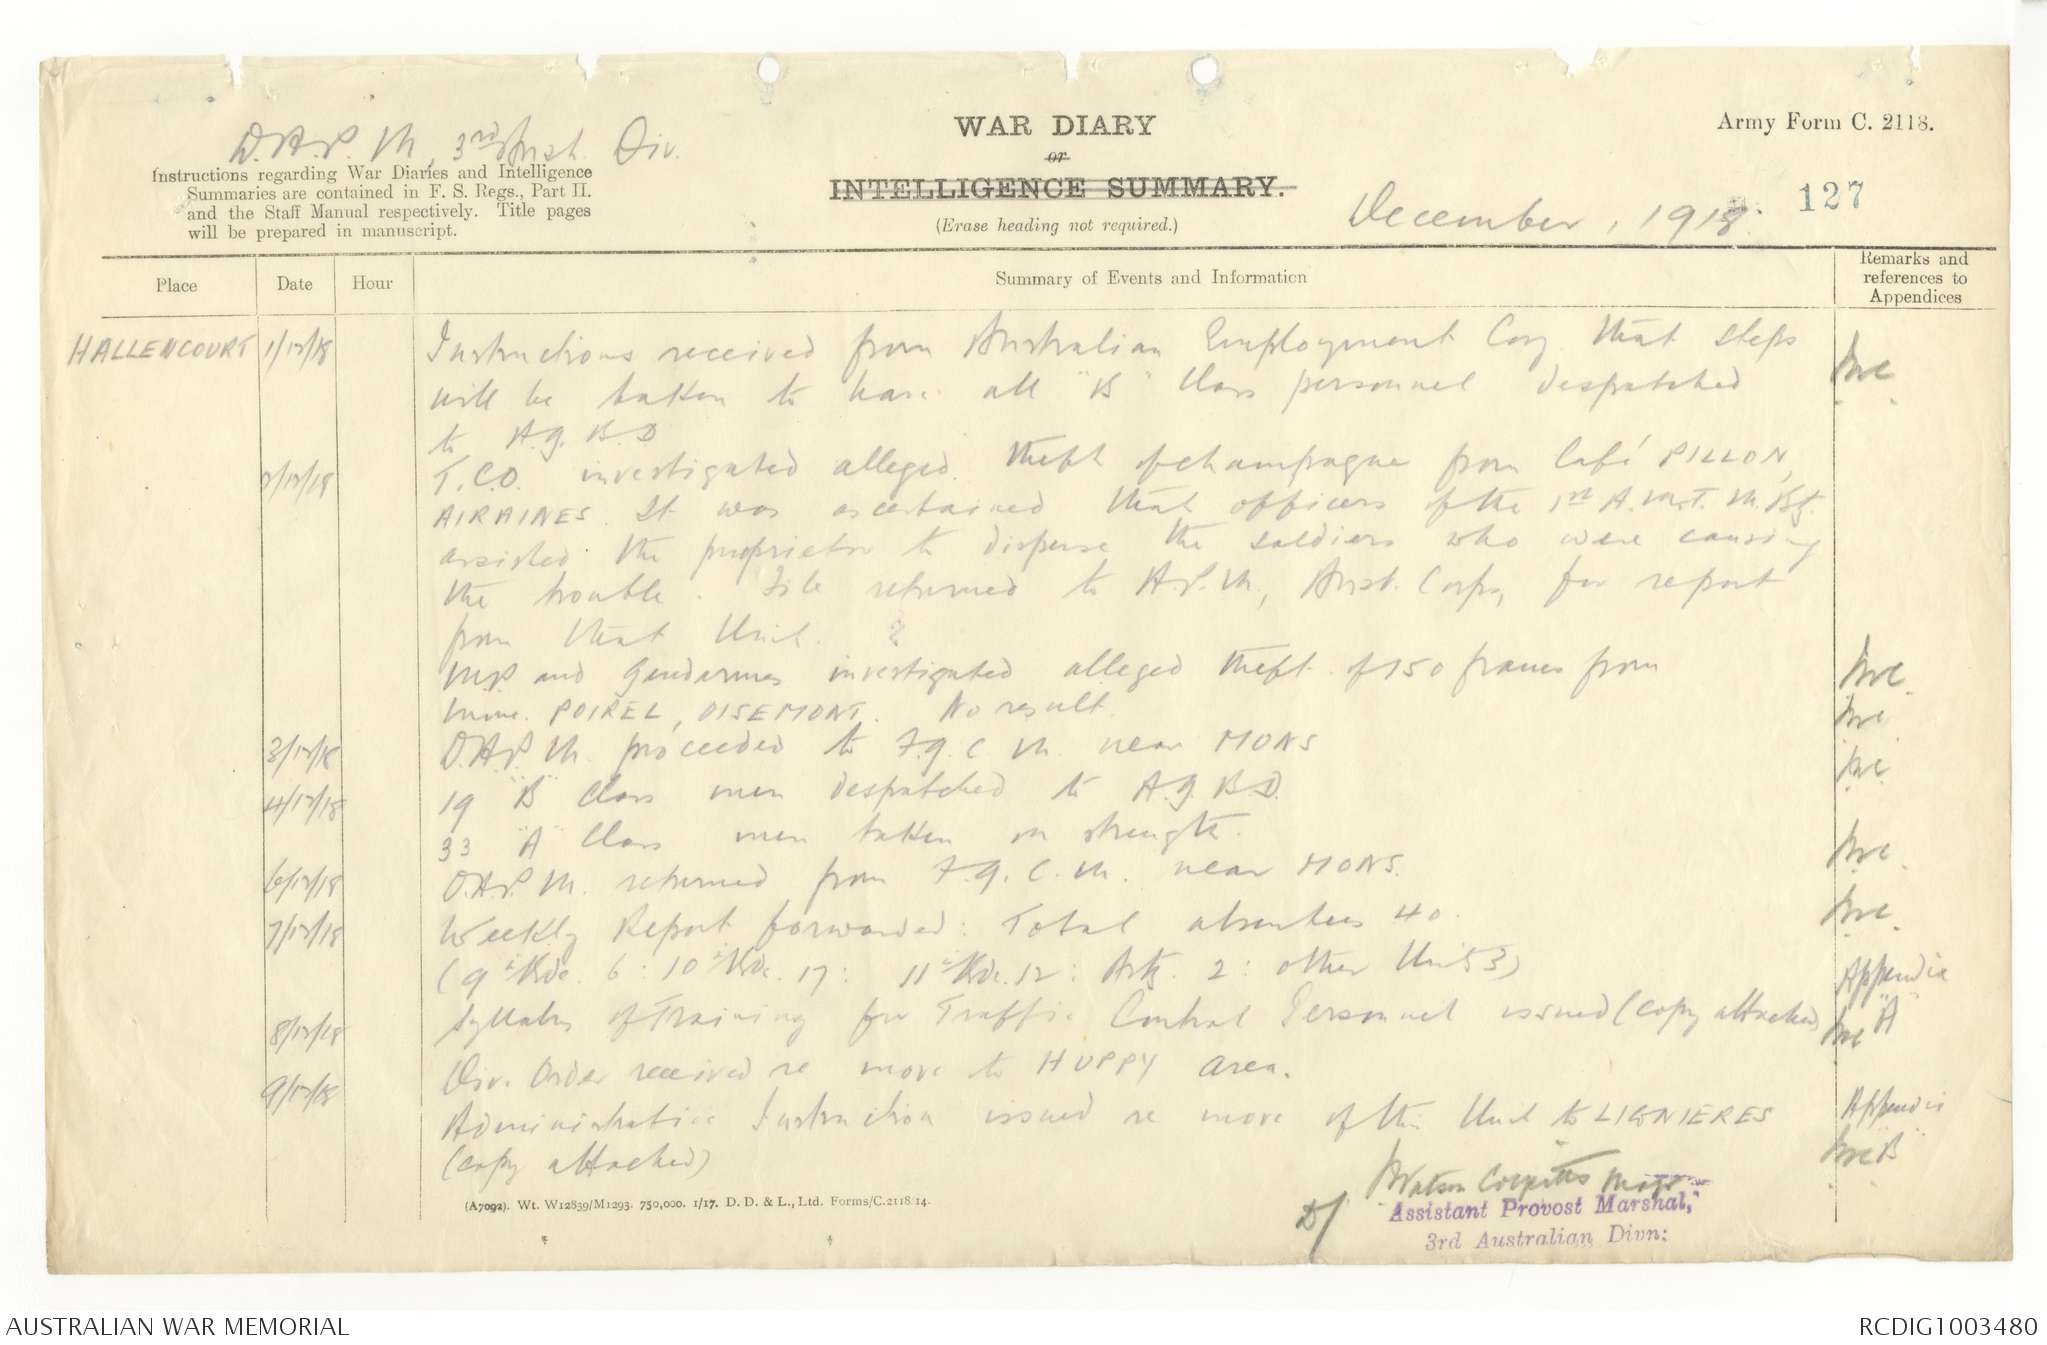 D.A.P.M, 3rd Aust. Div.
WAR DIARY
or
INTELLIGENCE SUMMARY.
(Erase heading not required.)
Army Form C. 2118.
Instructions regarding War Diaries and Intelligence
Summaries are contained in F. S. Regs., Part II.
and the Staff Manual respectively. Title pages
will be prepared in manuscript.
December, 1918.
127
Place Date Hour Summary of Events and Information Remarks and references to Appendices
HALLENCOURT 1/12/18 Instructions received from Australian Employment Coy that steps
will be taken to have all "B" Class personnel despatched
to A.G.B.D
2/12/18 T.C.O. investigated alleged theft of champagne from Café PILLON,
AIRAINES. It was ascertained that officers of the 1st A.M.T.M.By.
assisted the proprietor to disperse the soldiers who were causing
the trouble. File returned to A.P.M, Aust. Corps, for report
from that Unit.
M.P and Gendarmes investigated alleged theft of 150 francs from
Mme. POIREL, OISEMONT. No result.
3/12/18 D.A.P.M. proceeded to F.G.C.M. near MONS
4/12/18 19 "B" Class men despatched to A.G.B.D.
33 "A" Class men taken on strength.
6/12/18 D.A.P.M. returned from F.G.C.M. near MONS.
7/12/18 Weekly Report forwarded: Total absentees 40.
(9th Bde. 6: 10th Bde. 17: 11th Bde. 12: Arty. 2: other Units 3)
Syllabus of Training for Traffic Control Personnel issued (copy attached) Appendix "A"
8/12/18 Div. Order received re move to HUPPY area.
9/12/18 Administrative Instruction issued re move of this Unit to LIGNIERES Appendix "B"
(copy attached)
(A7092). Wt. W12839/M1293. 750,000. 1/17. D. D. & L., Ltd. Forms/C.2118/14.
D/
Assistant Provost Marshal,
3rd Australian Divn:
AUSTRALIAN WAR MEMORIAL
RCDIG1003480